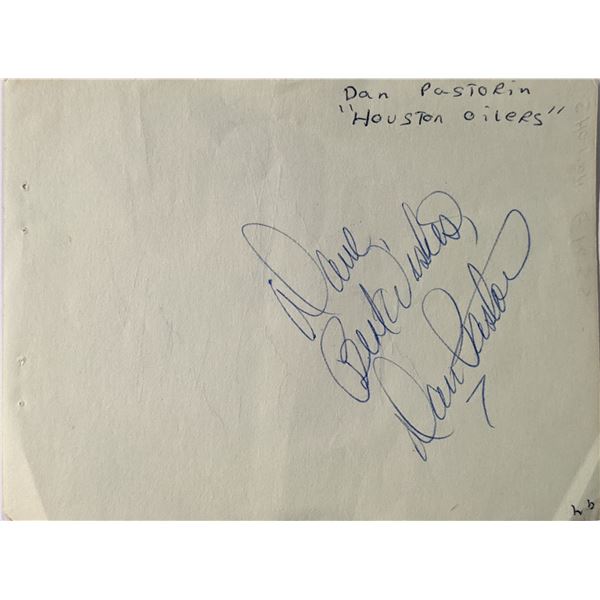 Dan Pastorin
"Houston Oilers"
Dave,
Best Wishes,
Dan Pastor
7